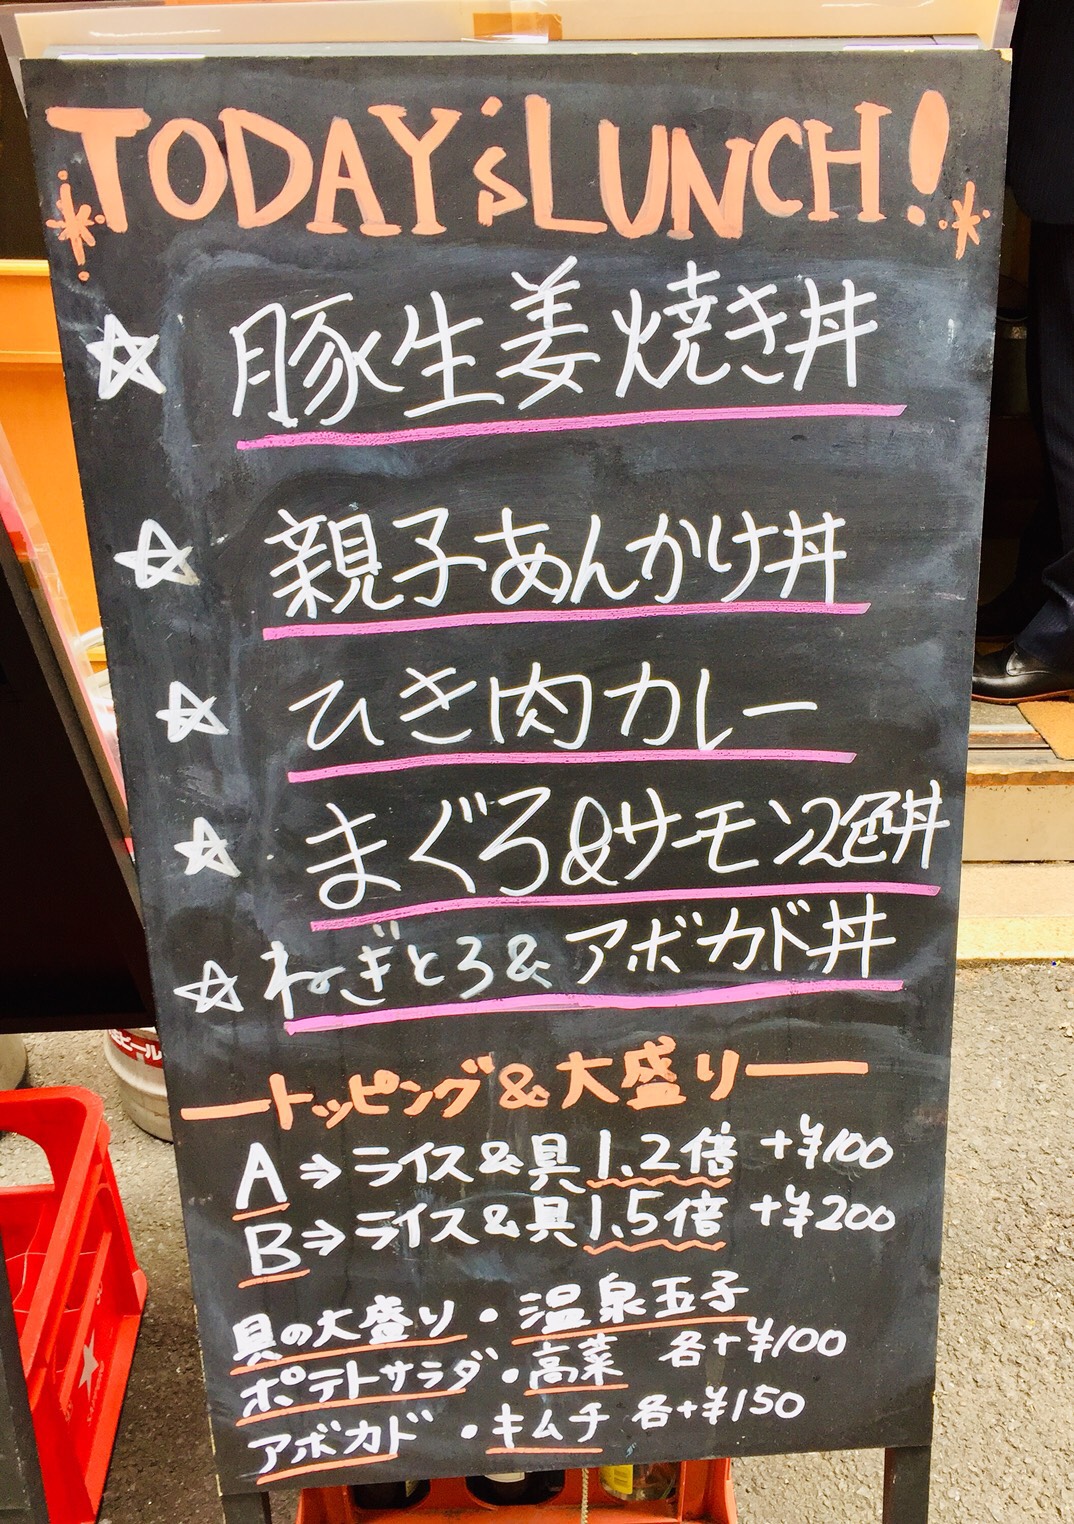 TODAY'S LUNCH!
☆ 豚生姜焼き丼
☆ 親子あんかけ丼
☆ ひき肉カレー
☆ まぐろ&サーモン2色丼
☆ ねぎとろ&アボカド丼
トッピング&大盛り
A⇒ライス&具1.2倍 +¥100
B⇒ライス&具1.5倍 +¥200
具の大盛り・温泉玉子
ポテトサラダ・高菜 各+¥100
アボカド・キムチ 各+¥150
ビール